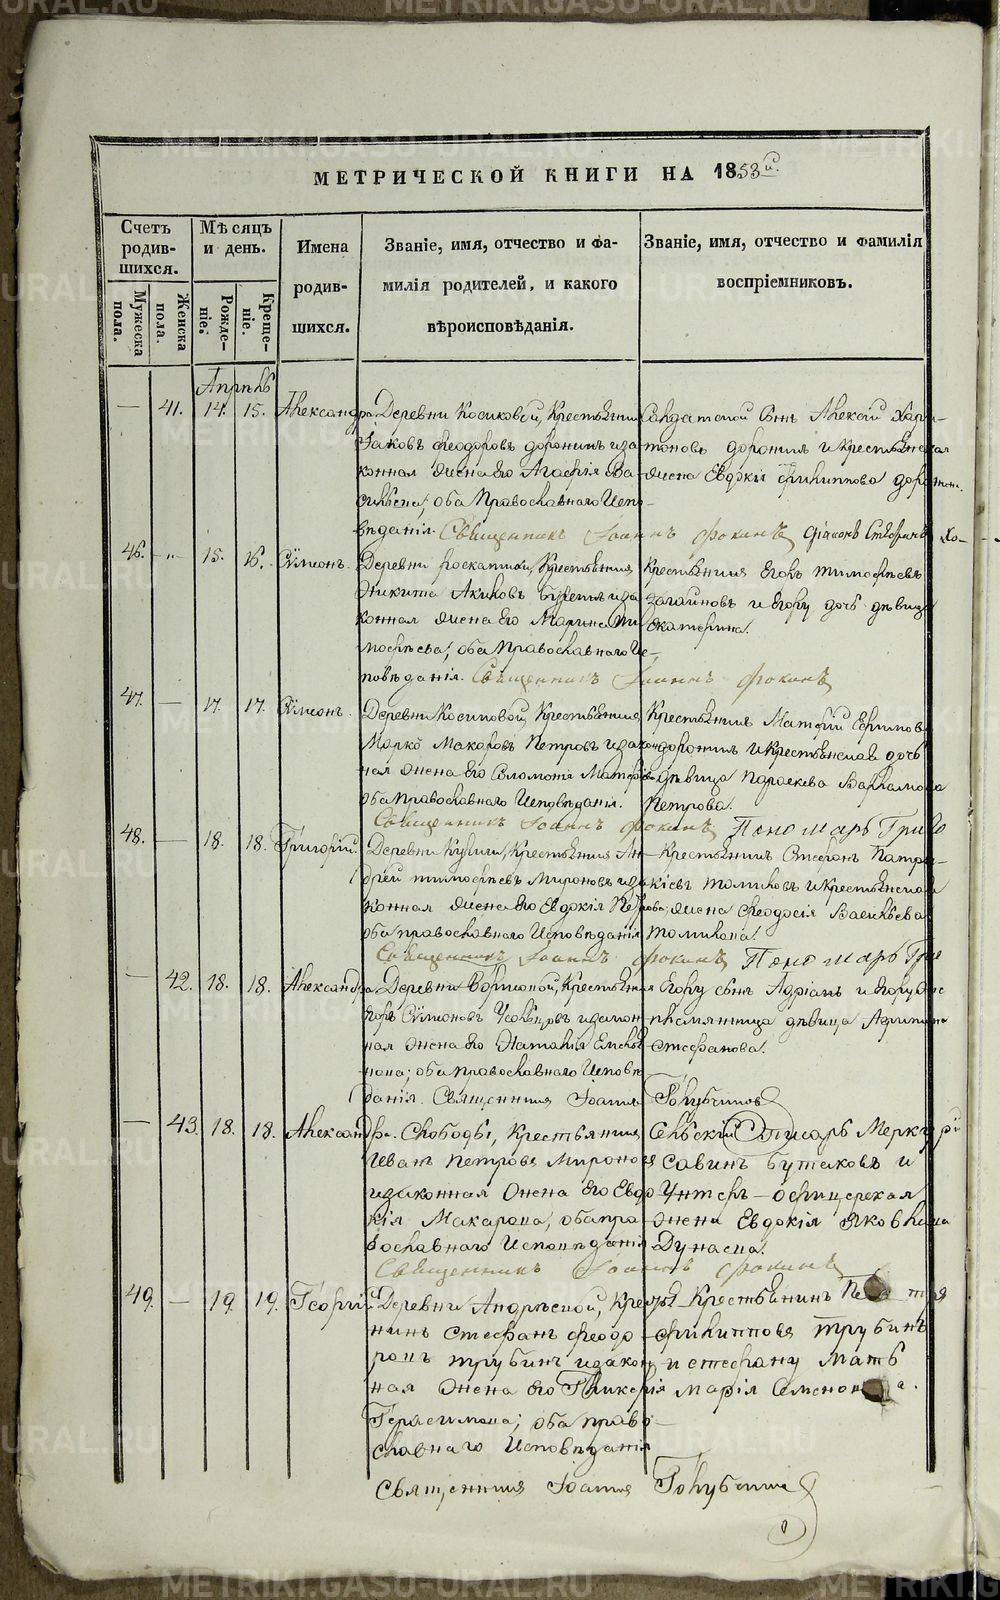 МЕТРИЧЕСКОЙ КНИГИ НА 1853й.
Счетъ родив-шихся.
Мужеска пола.
Женска пола.
Мѣсяцъ и день.
Рожде-ніе.
Креще-ніе.
Имена родив-шихся.
Званіе, имя, отчество и фа-
милія родителей, и какого
вѣроисповѣданія.
Званіе, имя, отчество и фамилія
воспріемниковъ.
Апрѣль
— 41. 14. 15. Александра Деревни Косиковой, Крестьянинъ
Іаковъ Феодоровъ Доронинъ и за
конная жена его Агафія Ва
сильева; оба Православнаго Испо-
вѣданія. Священникъ Іоаннъ Фокинъ
Солдатской сынъ Алексѣй Хари
тоновъ Доронинъ и Крестьянская
жена Евдокія Филиппова Доронин.
46. — 15. 16. Сѵмеонъ. Деревни Крестьянинъ
Никита Акиловъ и за
конная жена его Марина Ти
мофѣева; оба Православнаго Ис-
повѣданія. Священникъ Іоаннъ Фокинъ
Крестьянинъ Егоръ Тимофѣевъ
Загайновъ и Егору дочь дѣвица
Екатерина.
47. — 17. 17. Сѵмеонъ. Деревни Косиковой, Крестьянинъ
Марко Макаровъ Петровъ и закон
ная жена его Соломонія Матфіе
оба Православнаго Исповѣданія.
Священникъ Іоаннъ Фокинъ
Крестьянинъ Матфій Ефимовъ
Доронинъ и Крестьянская дочь
дѣвица Параскева Варламова
Петрова.
Пономарь Григо
48. — 18. 18. Григорій. Деревни Крестьянинъ Ан
дрей Тимофѣевъ Мироновъ и за
конная жена его Евдокія Пе
оба православнаго Исповѣданія
Священникъ Іоаннъ Фокинъ
Крестьянинъ Стефанъ Патри
кіевъ Томиловъ и Крестьянская
жена Феодосія Васильева
Томилова.
Пономарь Гри
— 42. 18. 18. Александра. Деревни Крестьянинъ
Егоръ Сѵмеоновъ Усольцовъ и закон
ная жена его Наталія Емелья
нова; оба православнаго Исповѣ
данія. Священникъ Іоаннъ Голубчиковъ
Егору сынъ Адріанъ и Егору же
племянница дѣвица Агрипина
Стефанова.
— 43. 18. 18. Александра. Слободы, Крестьянинъ
Иванъ Петровъ Мироновъ
и законная жена его Евдо
кія Макарова; оба пра
вославнаго Исповѣданія
Священникъ Іоаннъ Фокинъ
Сельскій Писарь Меркурій
Савинъ Бутаковъ и
Унтеръ-офицерская
жена Евдокія Яковлева
Дунаева.
49. — 19. 19. Георгій. Деревни Андрѣевой, Крестья
нинъ Стефанъ Феодо
ровъ Трубинъ и закон
ная жена его Гликерія
Герасимова; оба право
славнаго Исповѣданія
Священникъ Іоаннъ Голубчиковъ
Крестьянинъ
Филипповъ Трубинъ
и Стефану мать
Марія Семенова.